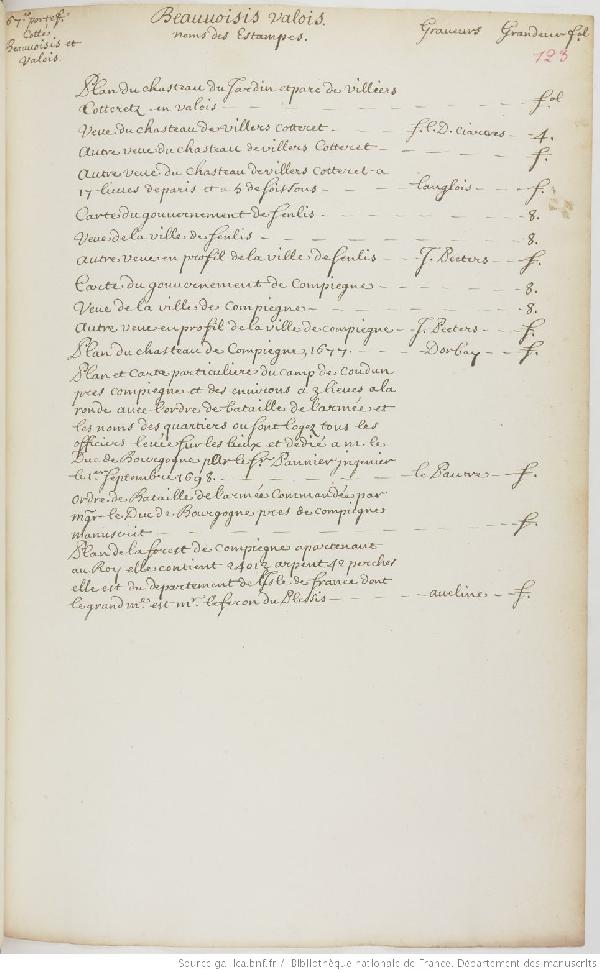 67.e portef.
Cotté
Beauvoisis et
Valois.
Beauvoisis Valois.
noms des Estampes. Graveurs Grandeur fol
123
Plan du chasteau du Jardin et parc de Villiers
Cotteretz en valois - fol
Veue du chasteau de villers Cotteret - f. l. D. Ciartres - 4.
Autre veue du chasteau de villers Cotteret - f.
Autre veue du chasteau de villers Cotteret a
17 lieues de paris et a 5 de soissons - Langlois - f.
Carte du gouvernement de senlis - 8.
Veue de la ville de senlis - 8.
Autre veue en profil de la ville de senlis - J. Peeters - f.
Carte du gouvernement de Compiegne - 8.
Veue de la ville de Compiegne - 8.
Autre veue en profil de la ville de compiegne - J. Peeters - f.
Plan du chasteau de Compiegne 1677 - Dorbay - f.
Plan et Carte particuliere du camp de Coudun
pres compiegne et des environs a 3 lieues a la
ronde avec l'ordre de bataille de l'armée et
les noms des quartiers ou sont logez tous les
officiers levée sur les lieux et dedié a m. le
Duc de Bourgogne par le sr. Pannier jngenier
le 1.er Septembre 1698. - le Pautre - f.
ordre de Bataille de l'armée Commandée par
mgr. le Duc de Bourgogne pres de compiegne
manuscrit - f.
Plan de la forest de Compiegne apartenant
au Roy elle contient 24012 arpent 42 perches
elle est du departement de l'Jsle de france dont
le grand me. est mr. le feron du Plessis - aveline - f.
Source gallica.bnf.fr / Bibliothèque nationale de France. Département des manuscrits